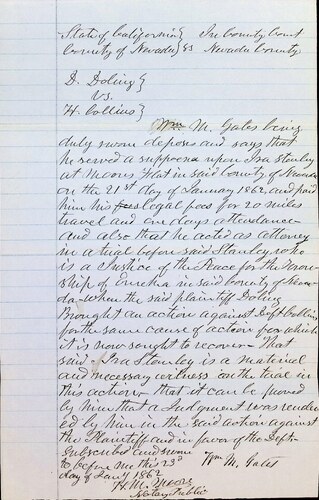 State of California } In County Court
County of Nevada } ss Nevada County
D. Doling }
vs.
H. Collins }
Wm M. Gates being
duly sworn deposes and says that
he served a suppoena upon Ira Stanley
at Moores Flat in said County of Nevada
on the 21st day of January 1862, and paid
him his fees legal fees for 20 miles
travel and one days attendance
and also that he acted as attorney
in a trial before said Stanley, who
is a Justice of the Peace for the Town-
ship of Eureka in said County of Neva-
da when the said plaintiff Doling
Brought an action against Deft Collins
for the same cause of action for which
it is now sought to recover - That
said Ira Stanley is a material
and necessary witness on the trial in
this action, that it can be proved
by him that a Judgment was render
ed by him in the said action against
the Plaintiff and in favor of the Deft-
Subscribed and sworn
to before me this 23d Wm M. Gates
day of Jany 1862
H. M. Moore
Notary Public